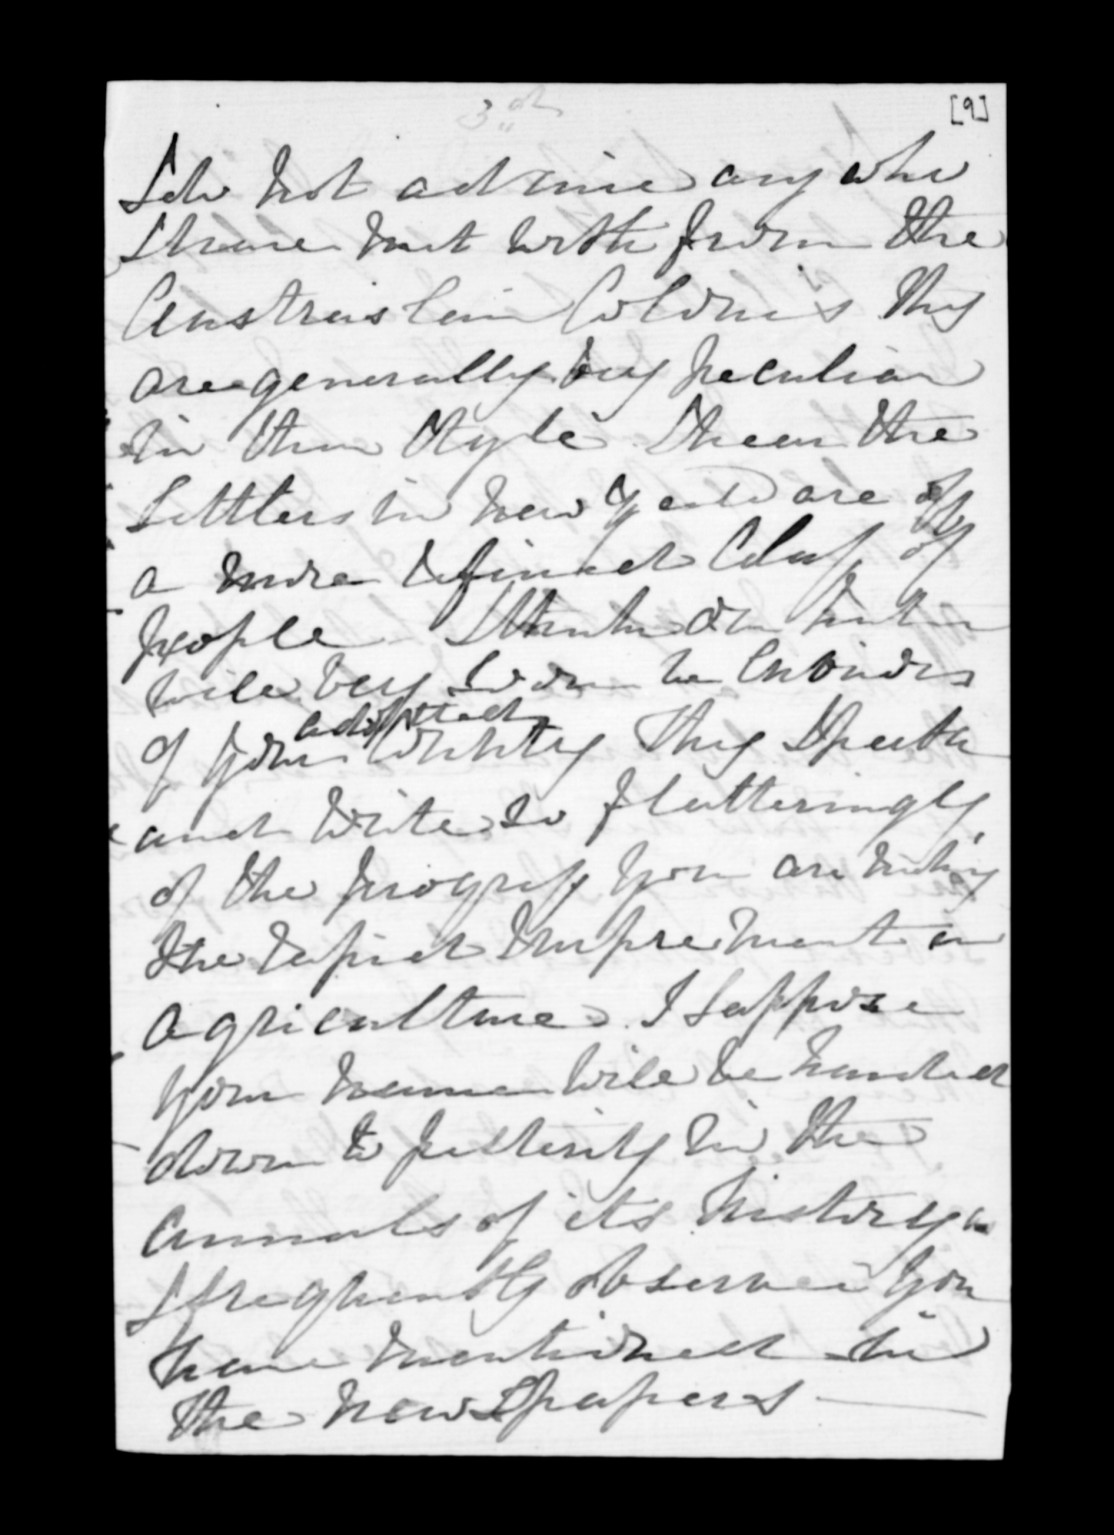 3rd
[9]
I do not admire any who
I have met with from the
Austrailain Colonies they
are generally very peculiar
in their Style I hear the
Settlers in New Zeald are of
a more refined Class of
people I think our tenter
will very soon be envious
of your adopted Country they Speak
and write so flatteringly
of the progress you are making
the rapid Improvement in
agriculture. I Suppose
your name will be handed
down to posterity in the
annals of its history as
I frequently observe your
name mentioned in
the newspapers —